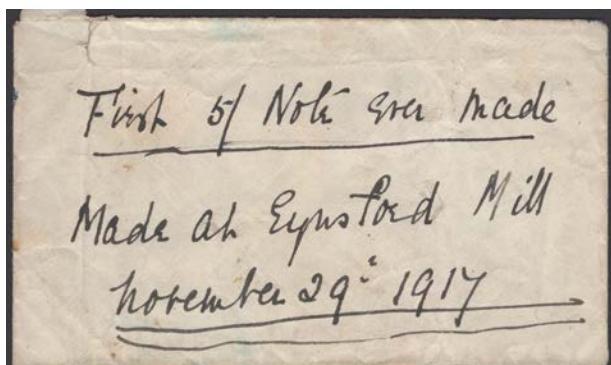 First 5/ Note ever made
Made at Eynsford Mill
november 29ᵗ 1917